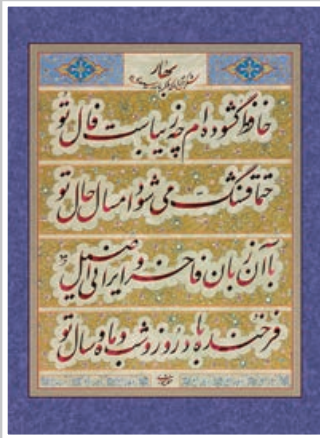 بهار
حافظ گشوده‌ام چه زیباست فال تو
حتما قشنگ می شود امسال حال تو
با آن زبان فاخر و ایرانی اصیل
فرخنده باد روز و شب و ماه و سال تو